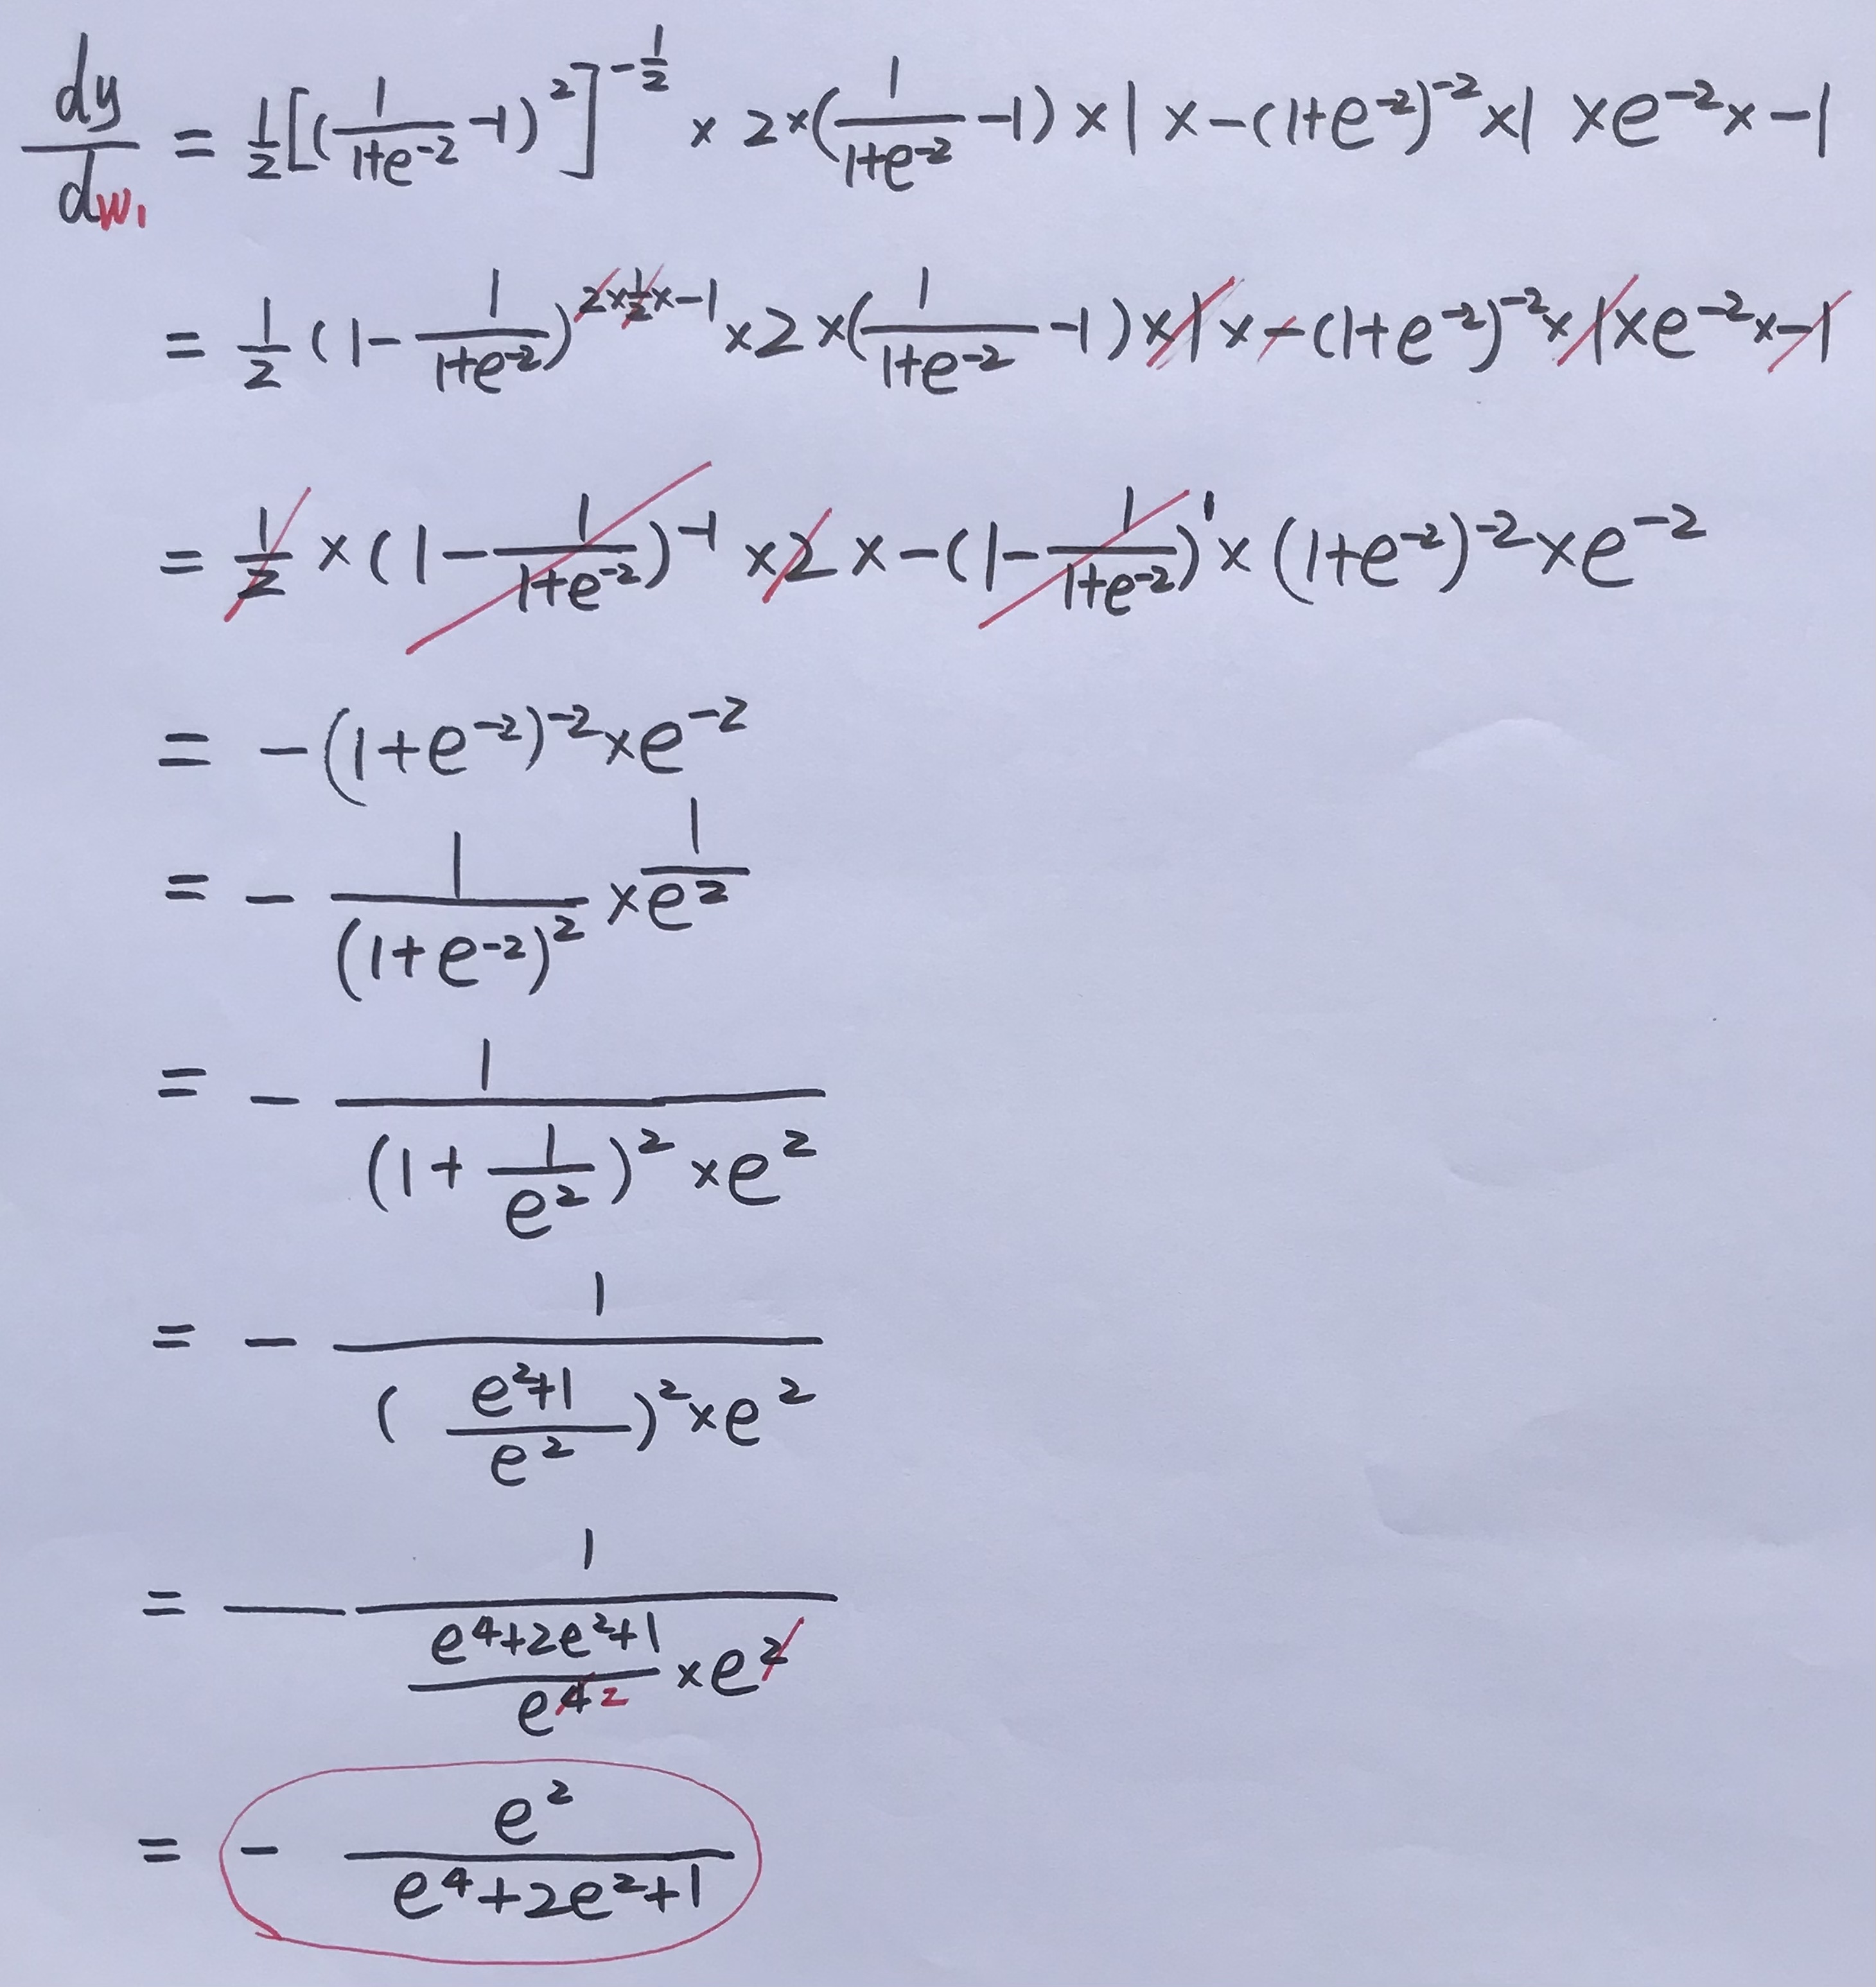 dy/dw₁ = ½[(1/(1+e⁻²) -1)²]^(-½) × 2×(1/(1+e⁻²) -1) ×1 × -(1+e⁻²)⁻² ×1 ×e⁻² × -1
= ½ (1- 1/(1+e⁻²))^(2×½×-1) ×2 ×(1/(1+e⁻²) -1) ×1 × -(1+e⁻²)⁻² ×1×e⁻² × -1
= ½ × (1- 1/(1+e⁻²))⁻¹ ×2 × -(1- 1/(1+e⁻²))¹ × (1+e⁻²)⁻² ×e⁻²
= -(1+e⁻²)⁻² ×e⁻²
= - 1/(1+e⁻²)² × 1/e²
= - 1/((1+ 1/e²)² ×e²)
= - 1/(((e²+1)/e²)² ×e²)
= - 1/((e⁴+2e²+1)/e⁴ ² ×e²)
= - e²/(e⁴+2e²+1)